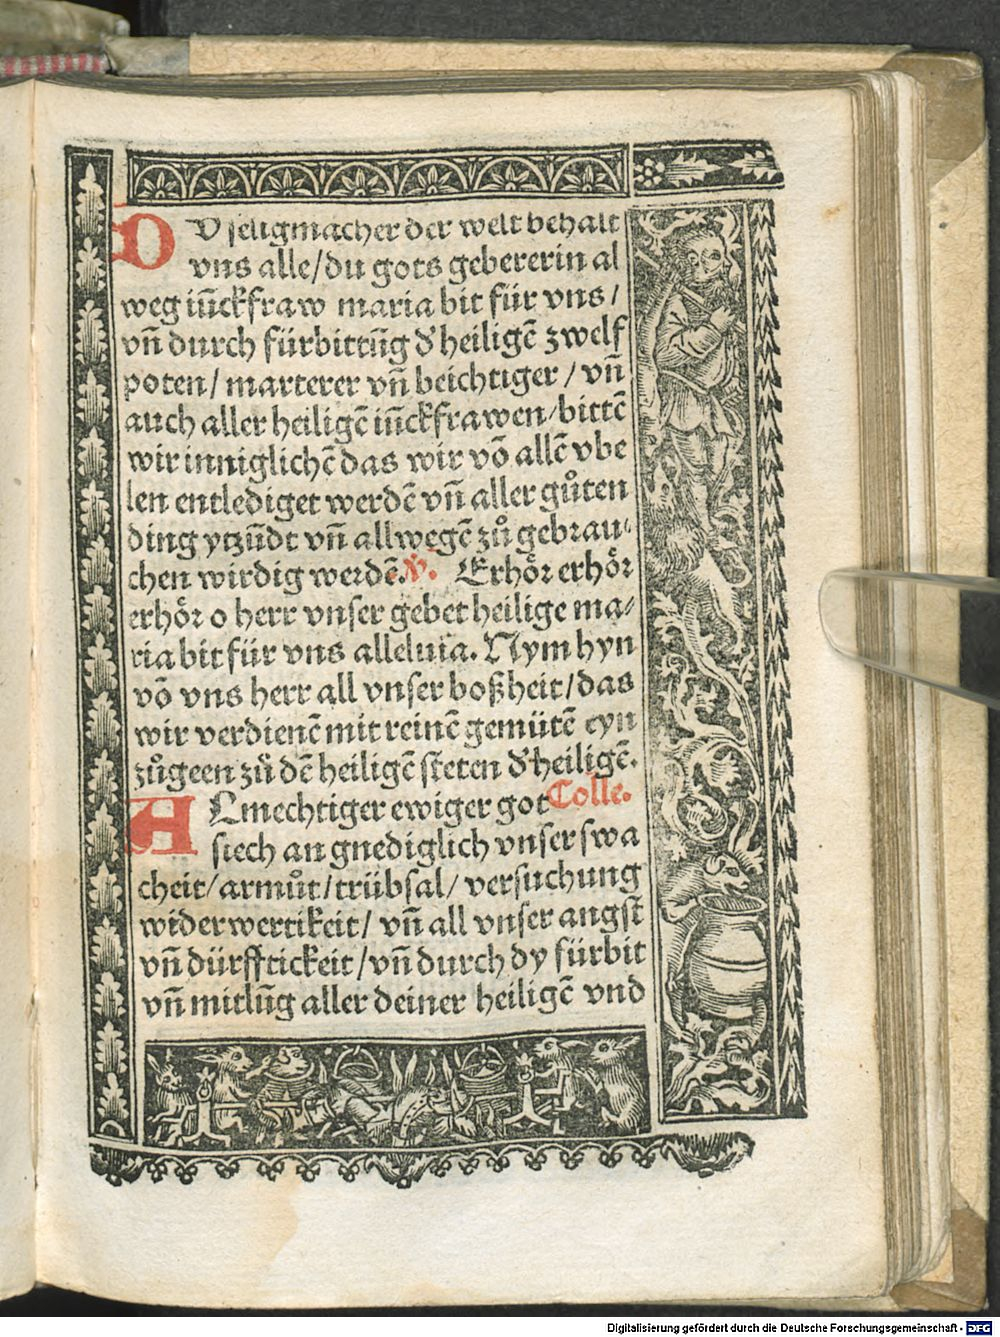 DV seligmacher der welt behalt
vns alle/du gots gebererin al
weg iũckfraw maria bit für vns/
vñ durch fürbittũg d' heiligẽ zwelf
poten/ marterer vñ beichtiger/ vñ
auch aller heiligẽ iũckfrawen/bittẽ
wir inniglichẽ das wir võ allẽ vbe
len entlediget werdẽ vñ aller gůten
ding ytzũdt vñ allwegẽ zů gebrau⸗
chen wirdig werdẽ. V. Erhör erhör
erhör o herr vnser gebet heilige ma⸗
ria bit für vns alleluia. Nym hyn
võ vns herr all vnser boßheit/das
wir verdienẽ mit reinẽ gemütẽ eyn
zůgeen zů dẽ heiligẽ steten d' heiligẽ.
ALmechtiger ewiger got Colle.
siech an gnediglich vnser swa
cheit/ armůt/ trübsal/ versuchung
widerwertikeit/ vñ all vnser angst
vñ dürfftickeit/vñ durch dy fürbit
vñ mitlũg aller deiner heiligẽ vnd
Digitalisierung gefördert durch die Deutsche Forschungsgemeinschaft - DFG